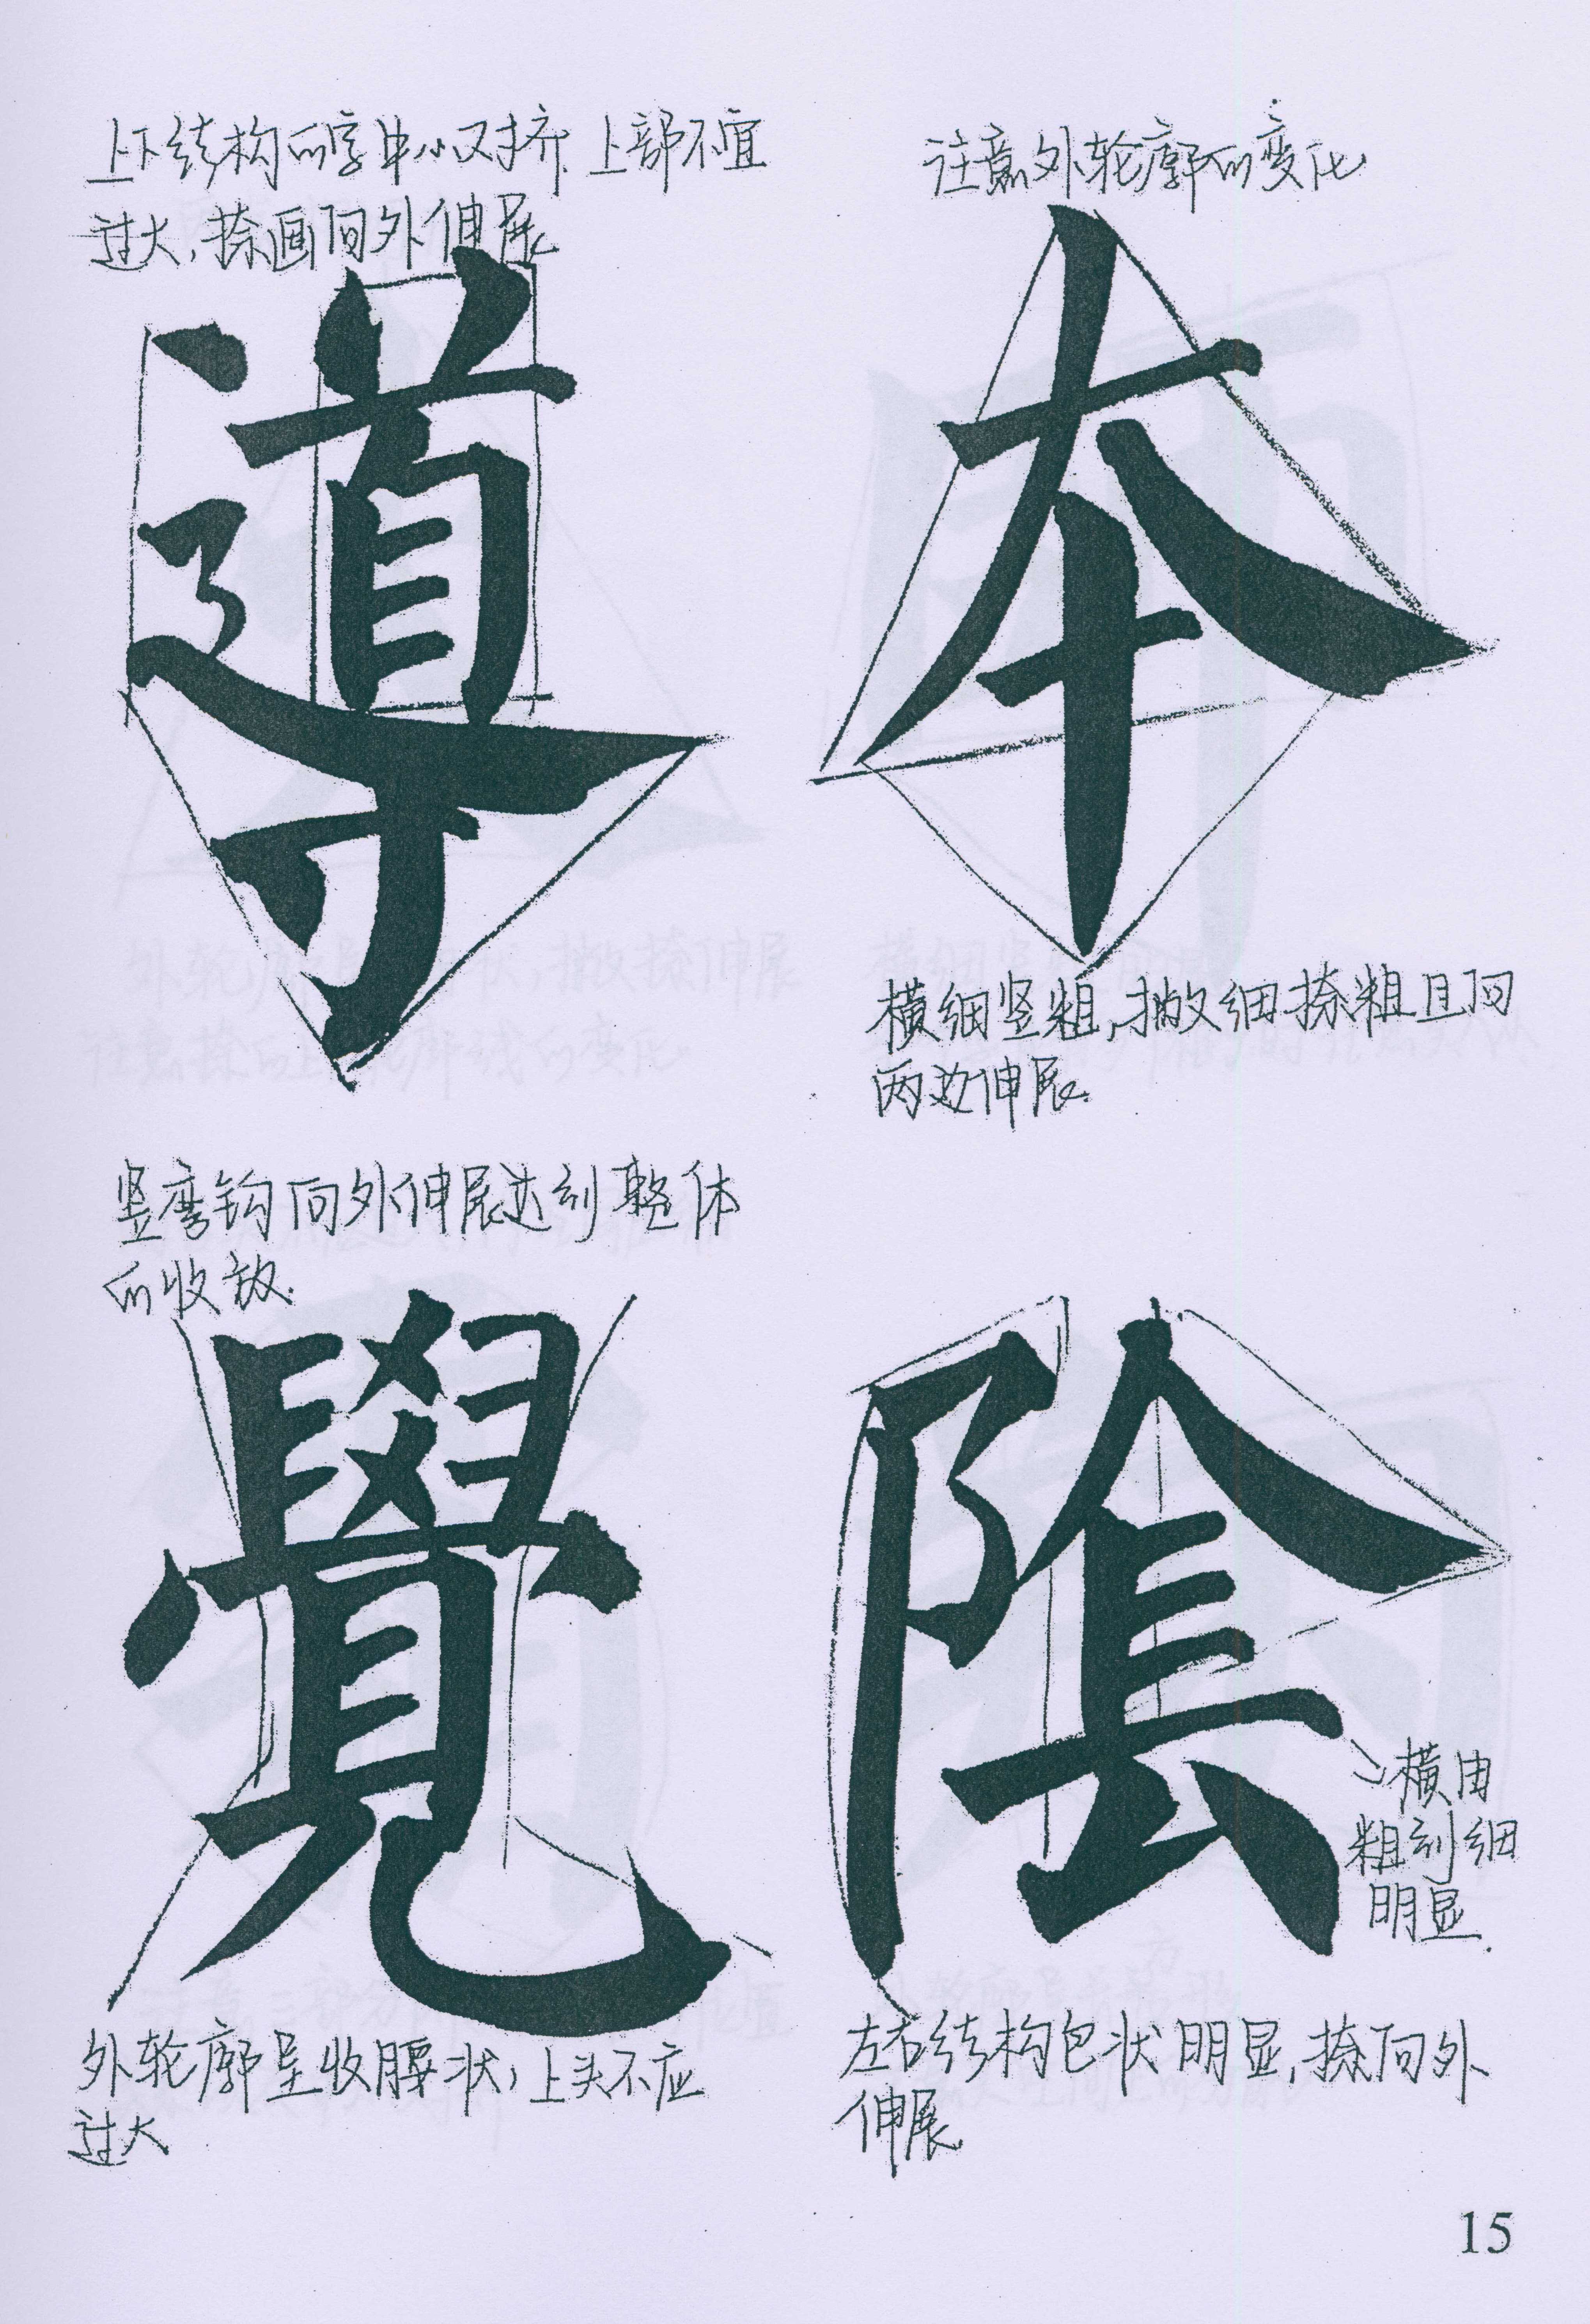 上下结构的字中心对齐,上部不宜
过大,捺画向外伸展
導
注意外轮廓的变化
本
横细竖粗,撇细捺粗且向
两边伸展.
竖弯钩向外伸展达到整体
的收放.
覺
外轮廓呈收腰状,上头不应
过大
陰
横由
粗到细
明显.
左右结构包状明显,捺向外
伸展.
15